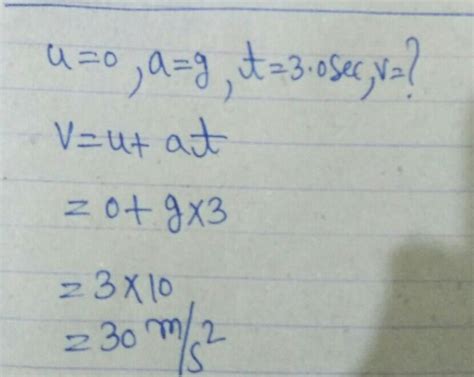 u=0, a=g, t=3.0sec, v=?
V=u+ at
= 0+ g×3
= 3×10
= 30 m/s²